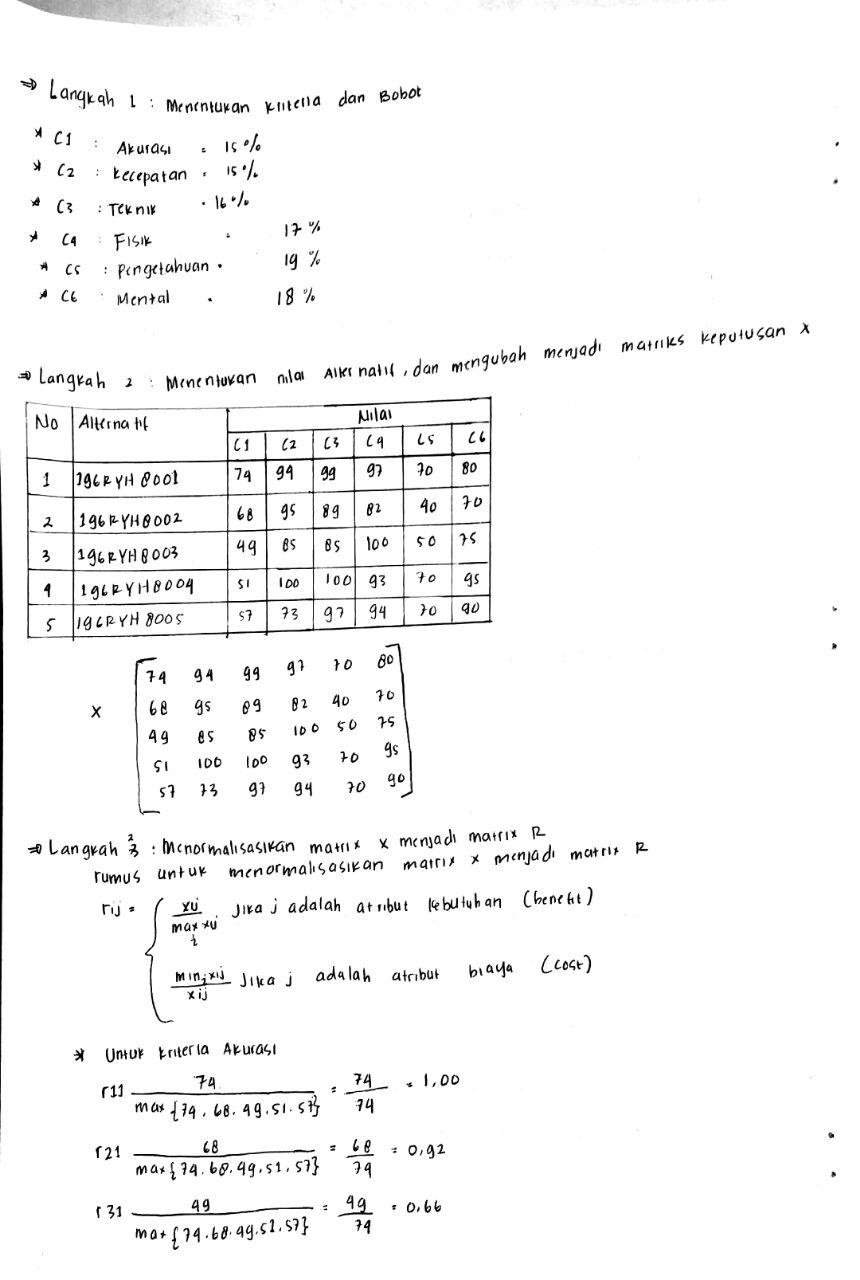 ⇒ Langkah 1 : Menentukan kriteria dan Bobot
* C1 : Akurasi = 15%
* C2 : kecepatan = 15%
* C3 : Teknik = 16%
* C4 : Fisik = 17%
* C5 : pengetahuan = 19%
* C6 : Mental = 18%
⇒ Langkah 2 : Menentukan nilai Alternatif, dan mengubah menjadi matriks keputusan X
No Alternatif Nilai
C1 C2 C3 C4 C5 C6
1 196RYH8001 74 94 99 97 70 80
2 196RYH8002 68 95 89 82 40 70
3 196RYH8003 49 85 85 100 50 75
4 196RYH8004 51 100 100 93 70 95
5 196RYH8005 57 73 97 94 70 90
74 94 99 97 70 80
X 68 95 89 82 40 70
49 85 85 100 50 75
51 100 100 93 70 95
57 73 97 94 70 90
⇒ Langkah 3 : Menormalisasikan matrix x menjadi matrix R
rumus untuk menormalisasikan matrix x menjadi matrix R
rij = { xij / max xij i Jika j adalah atribut kebutuhan (benefit)
min; xij / xij Jika j adalah atribut biaya (cost)
* Untuk kriteria Akurasi
r11 74 / max {74, 68, 49, 51, 57} = 74 / 74 = 1,00
r21 68 / max {74, 68, 49, 51, 57} = 68 / 74 = 0,92
r31 49 / max {74, 68, 49, 51, 57} = 49 / 74 = 0,66